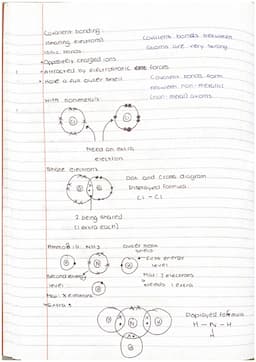 Covalent bonding
Sharing electrons
Ionic bonds
• Oppositely charged ions
• Attracted by electrostatic forces
• Have a full outer shell
Covalent bonds between
atoms are very strong
Covalent bonds form
between non-metallic
(non-metal) atoms
With nonmetals
Cl
Cl
Need an extra
electron
Share electrons
Dot and cross diagram
Displayed formula
Cl - Cl
2 being shared
(1 extra each)
NH3
outer
First energy
level
H
N
H
Second energy
level
H
Max: 2 electrons
needs 1 extra
Max: 8 electrons
extra 3
Displayed formula
H - N - H
H
H
N
H
H